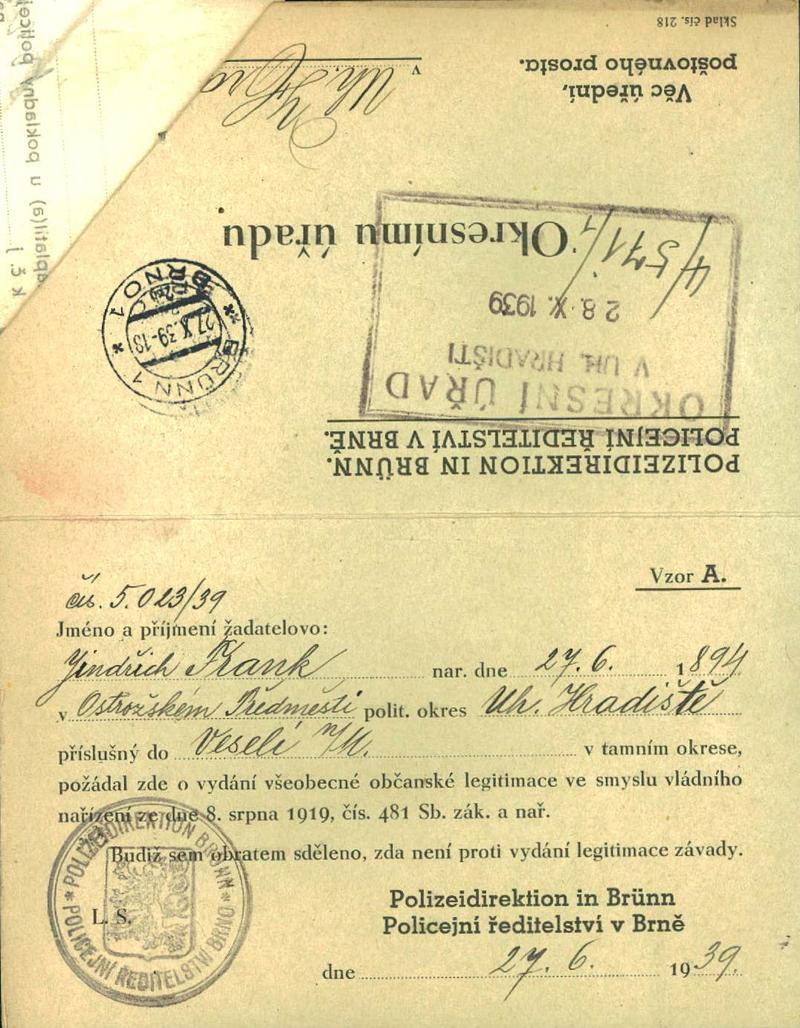 Sklad čís. 218
Věc úřední,
poštovného prosta.
Okresnímu úřadu
v Uh. Hrad
OKRESNÍ ÚŘAD
V UH. HRADIŠTI
28. X. 1939
BRÜNN 1
27. X. 39-18
BRNO 1
POLIZEIDIREKTION IN BRÜNN.
POLICEJNÍ ŘEDITELSTVÍ V BRNĚ.
aplatil(a) u pokladny policej
K č. j
Vzor A.
čís. 5.023/39
Jméno a příjmení žadatelovo:
Jindřich Frank nar. dne 27. 6. 1894
v Ostrožském Předměstí polit. okres Uh. Hradiště
příslušný do Veselí n/M. v tamním okrese,
požádal zde o vydání všeobecné občanské legitimace ve smyslu vládního
nařízení ze dne 8. srpna 1919, čís. 481 Sb. zák. a nař.
Budiž sem obratem sděleno, zda není proti vydání legitimace závady.
Polizeidirektion in Brünn
Policejní ředitelství v Brně
L. S.
POLIZEIDIREKTION BRÜNN
POLICEJNÍ ŘEDITELSTVÍ BRNO
dne 27. 6. 1939.